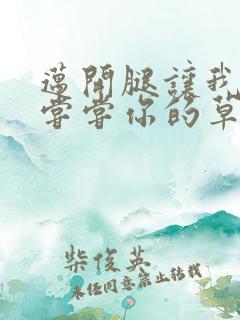 邁開腿讓我
嘗嘗你的草
柴俊英
未經同意禁止轉載